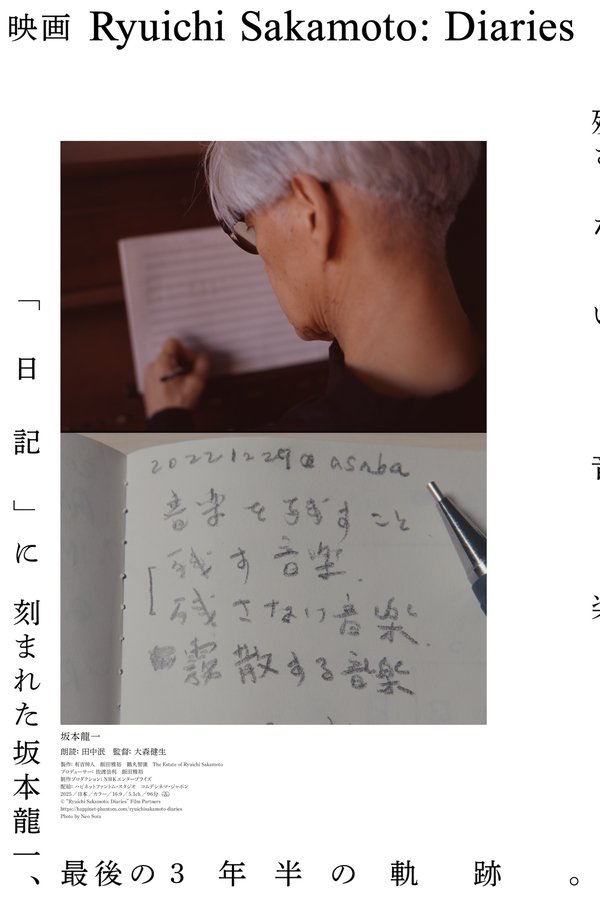 映画 Ryuichi Sakamoto: Diaries
「日記」に刻まれた坂本龍一、
最後の3年半の軌跡。
20221229 @ asaba
音楽を残すこと
残す音楽
残さない音楽
霧散する音楽
坂本龍一
朗読: 田中泯 監督: 大森健生
製作: 有吉伸人 飯田雅裕 鶴丸智康 The Estate of Ryuichi Sakamoto
プロデューサー: 佐渡岳利 飯田雅裕
制作プロダクション: NHKエンタープライズ
配給: ハピネットファントム・スタジオ コムデシネマ・ジャポン
2025/日本/カラー/16:9/5.1ch/96分 G
© "Ryuichi Sakamoto: Diaries" Film Partners
https://happinet-phantom.com/ryuichisakamoto-diaries
Photo by Neo Sora